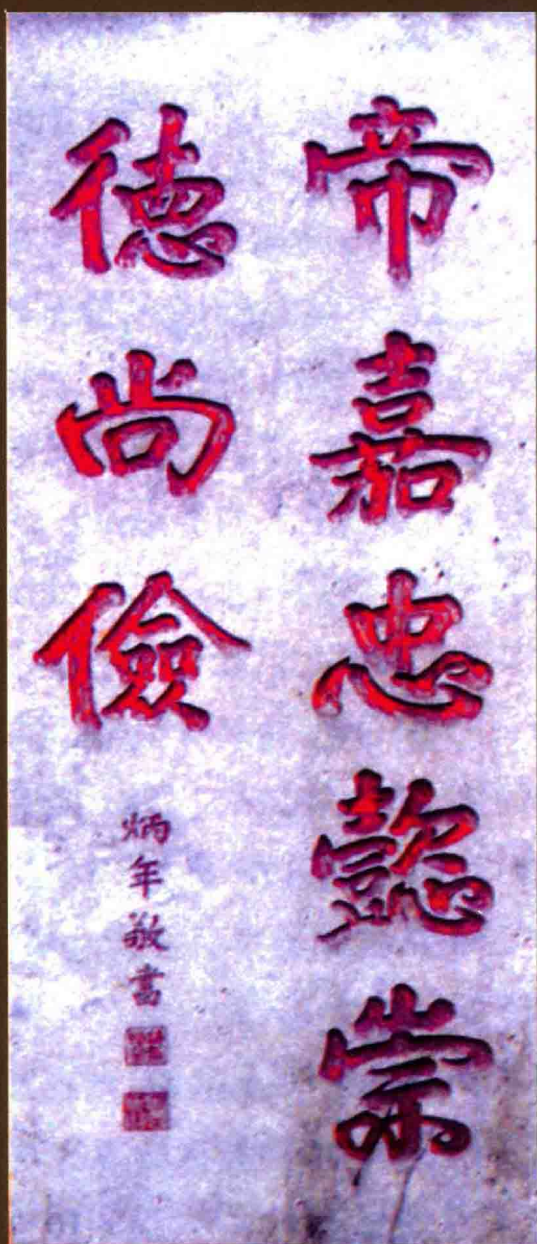 帝嘉忠懿崇
德尚儉
炳年敬書